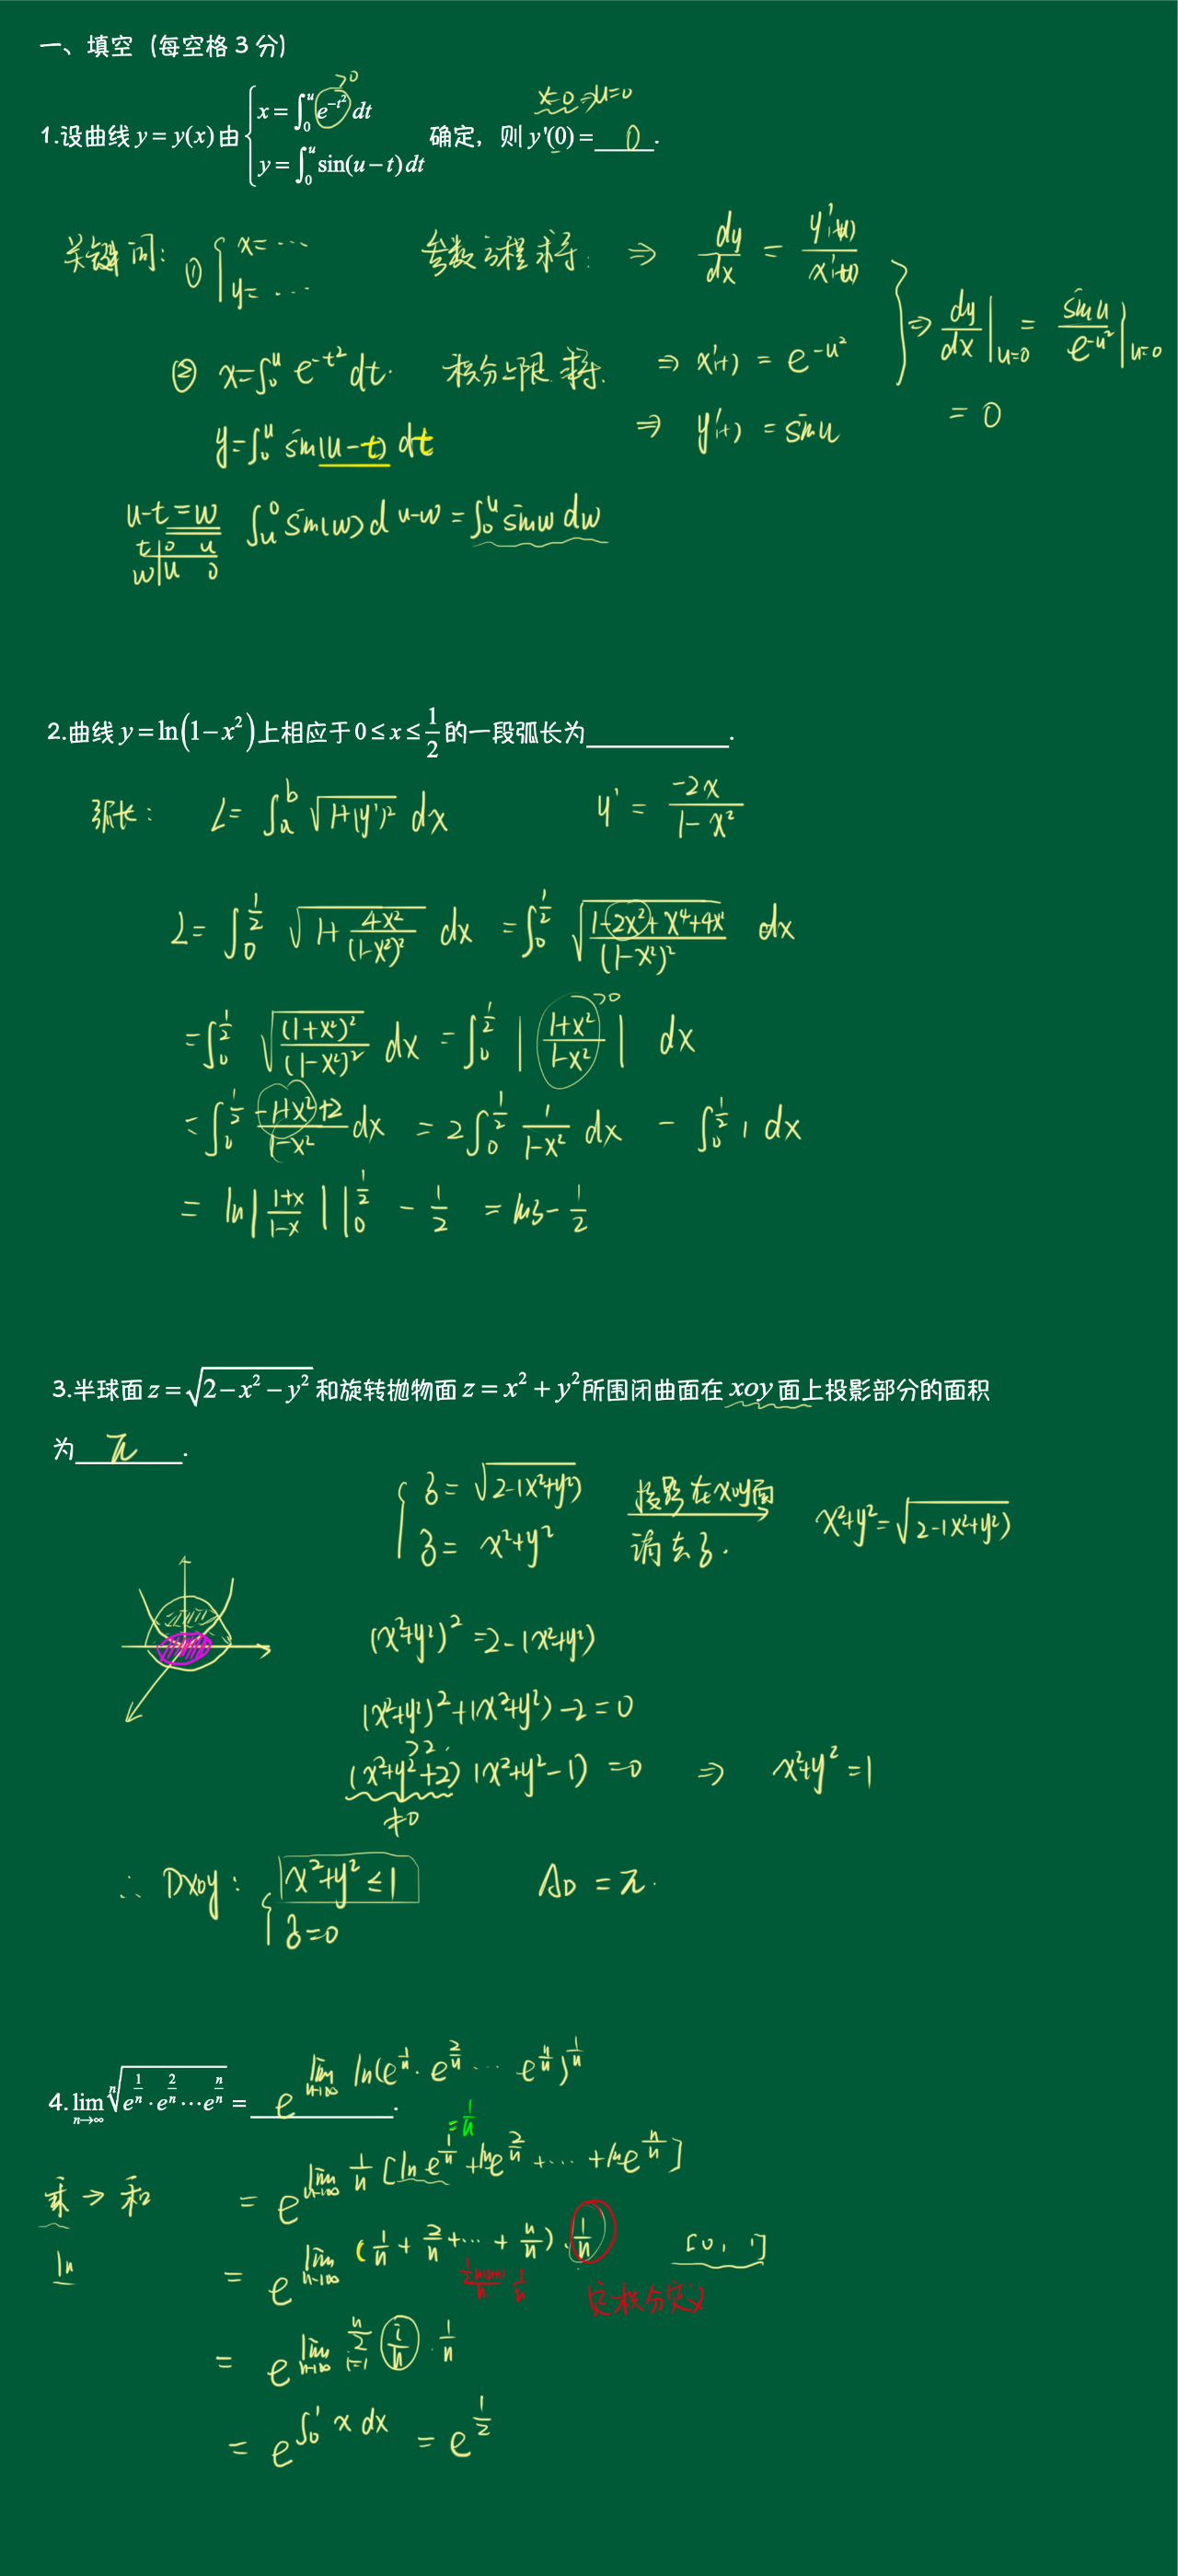 一、填空（每空格 3 分）
>0
x=0 ⇒ u=0
1.设曲线 y = y(x) 由 { x = ∫₀ᵘ e^{-t²} dt
y = ∫₀ᵘ sin(u − t) dt 确定，则 y'(0) = 0 .
关键词: ① { x= ⋯ y= ⋯
参数方程求导: ⇒ dy/dx = y'(u)/x'(u)
② x=∫₀ᵘ e^{-t²} dt. 积分上限求导. ⇒ x'(t) = e^{-u²}
} ⇒ dy/dx |_{u=0} = sinu/e^{-u²} |_{u=0}
y=∫₀ᵘ sin(u−t) dt ⇒ y'(t) = sinu
= 0
u-t=w ∫ᵤ⁰ sin(w) d u-w = ∫₀ᵘ sinw dw
t | 0 u
w | u 0
2.曲线 y = ln(1−x²) 上相应于 0 ≤ x ≤ 1/2 的一段弧长为 .
弧长: L= ∫ₐᵇ √(1+(y')²) dx y' = -2x/(1-x²)
L= ∫₀^{1/2} √(1+ 4x²/(1-x²)²) dx = ∫₀^{1/2} √((1-2x²+x⁴+4x²)/(1-x²)²) dx
= ∫₀^{1/2} √((1+x²)²/(1-x²)²) dx = ∫₀^{1/2} | (1+x²)/(1-x²) | dx
>0
= ∫₀^{1/2} (-1+x²+2)/(1-x²) dx = 2∫₀^{1/2} 1/(1-x²) dx − ∫₀^{1/2} 1 dx
= ln| (1+x)/(1-x) | |₀^{1/2} − 1/2 = ln3 − 1/2
3.半球面 z = √(2−x²−y²) 和旋转抛物面 z = x² + y² 所围闭曲面在 xoy 面上投影部分的面积
为 π .
{ z = √(2-(x²+y²))
z = x²+y²
投影在xoy面
消去z.
x²+y² = √(2-(x²+y²))
(x²+y²)² = 2-(x²+y²)
(x²+y²)² + (x²+y²) −2 = 0
≥2.
(x²+y²+2) (x²+y²−1) = 0 ⇒ x²+y² = 1
≠0
∴ Dxoy: { x²+y² ≤ 1
z=0
A_D = π.
4. lim_{n→∞} ⁿ√(e^{1/n} · e^{2/n} ⋯ e^{n/n}) = e^{lim_{n→∞} ln(e^{1/n} · e^{2/n} ⋯ e^{n/n})^{1/n}} .
=1/n
乘 → 和 = e^{lim_{n→∞} 1/n [ln e^{1/n} + ln e^{2/n} + ⋯ + ln e^{n/n}]}
ln = e^{lim_{n→∞} (1/n + 2/n + ⋯ + n/n) · 1/n} [0, 1]
定积分定义
= e^{lim_{n→∞} Σ_{i=1}^{n} i/n · 1/n}
= e^{∫₀¹ x dx} = e^{1/2}